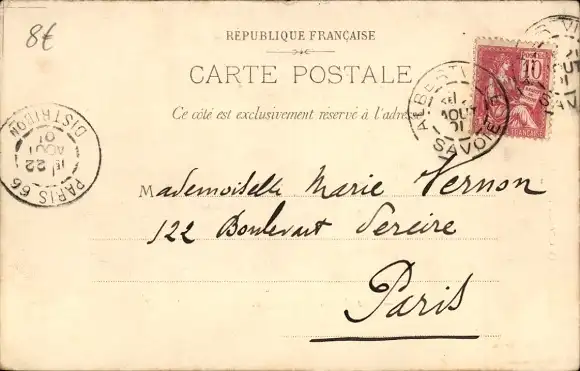 8€
RÉPUBLIQUE FRANÇAISE
CARTE POSTALE
Ce côté est exclusivement reservé à l'adresse
ALBERTVILLE
AOUT
01
SAVOIE
10
FRANÇAISE
PARIS 66
22
AOUT
01
DISTRIBON
Mademoiselle Marie Vernon
122 Boulevart Pereire
Paris